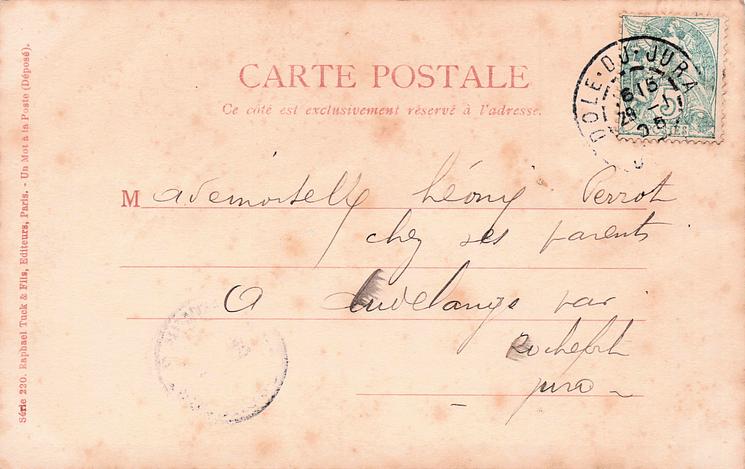 CARTE POSTALE
Ce côté est exclusivement réservé à l'adresse.
DOLE-DU-JURA
Mademoiselle Léony Perrot
chez ses parents
A Audelange par
Rochefort
Jura
Série 220. Raphael Tuck & Fils, Editeurs, Paris. - Un Mot à la Poste (Déposé).